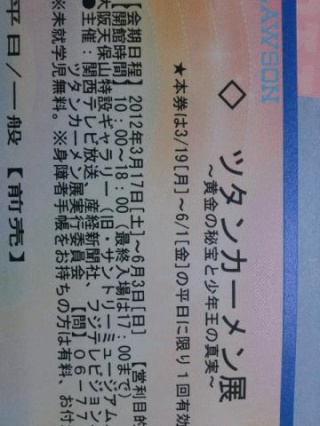 LAWSON
◇ ツタンカーメン展
～黄金の秘宝と少年王の真実～
★本券は3/19[月]～6/1[金]の平日に限り1回有効
【会期日程】2012年3月17日[土]～6月3日[日]【営利目的
【開館時間】10：00～18：00（最終入場は17：00まで）
大阪天保山特設ギャラリー（旧・サントリーミュージアム
●主催：関西テレビ放送、産経新聞社、フジテレビジョン
ツタンカーメン展実行委員会 【問】06-77
※未就学児無料。※身障者手帳をお持ちの方は有料、お付
平日/一般 【前売】